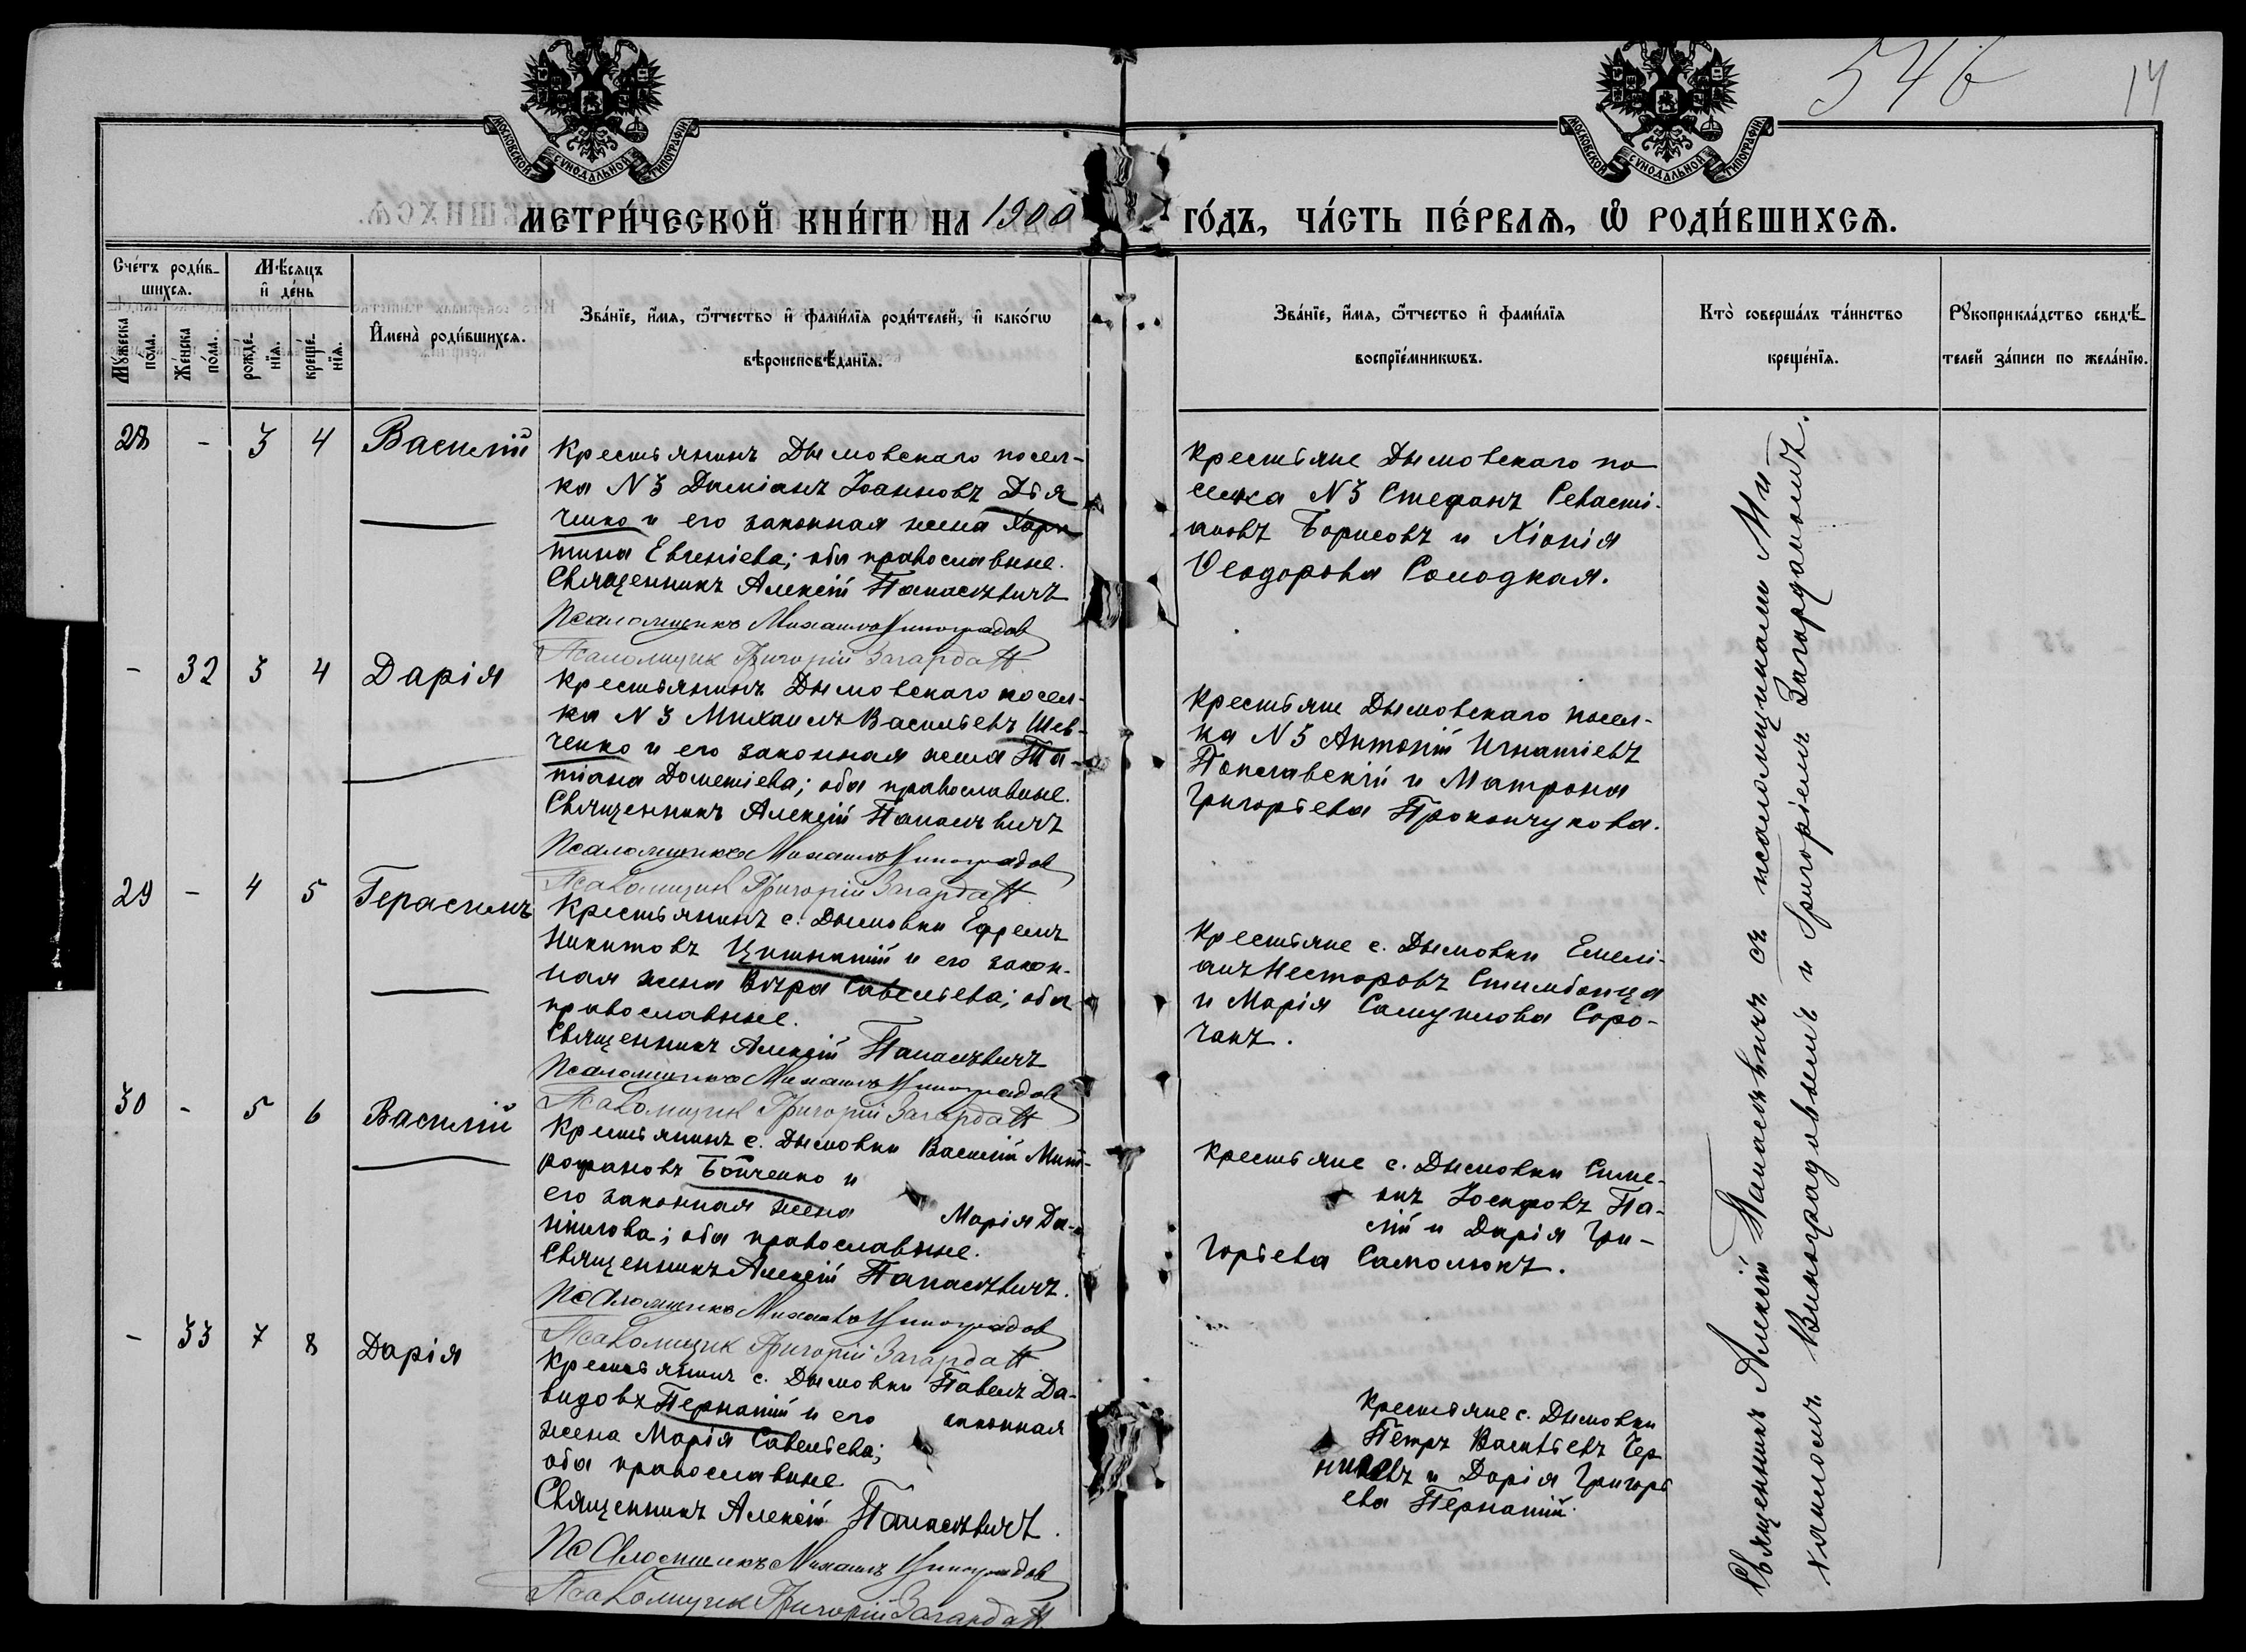 546
14
МОСКОВСКОЙ СУНОДАЛЬНОЙ ТИПОГРАФІИ
МОСКОВСКОЙ СУНОДАЛЬНОЙ ТИПОГРАФІИ
МЕТРИ́ЧЕСКОЙ КНИ́ГИ НА 1900 ГО́ДЪ, ЧА́СТЬ ПЕ́РВАѦ, Ѡ҆ РОДИ́ВШИХСѦ.
Сче́тъ роди́в-
шихсѧ.
Мꙋ́жеска
пола.
Же́нска
по́ла.
Мѣ́сѧцъ
и҆ де́нь
рожде́-
нїѧ.
креще́-
нїѧ.
И҆мена̀ роди́вшихсѧ.
Зва́нїе, и҆́мѧ, ѻ҆́тчество и҆ фами́лїѧ роди́телей, и҆ како́гѡ
вѣроисповѣ́данїѧ.
Зва́нїе, и҆́мѧ, ѻ҆́тчество и҆ фами́лїѧ
воспрїе́мникѡвъ.
Кто̀ соверша́лъ та́инство
креще́нїѧ.
Рꙋкоприкла́дство свидѣ́-
телей за́писи по жела́нїю.
28 - 3 4 Василій
Крестьянинъ Дымовскаго посел-
ка N 3 Даміанъ Іоанновъ Дья
ченко и его законная жена Хари
тина Евгеніева; оба православные.
Священникъ Алексій Панасѣвичъ
Псаломщикъ Михаилъ Виноградов
Псаломщик Григорій Загардан
Крестьяне Дымовскаго по
селка N 3 Стефанъ Севасті-
ановъ Борисовъ и Хіонія
Ѳеодорова Солодкая.
- 32 3 4 Дарія
Крестьянинъ Дымовскаго посел-
ка N 3 Михаилъ Васильевъ Шев-
ченко и его законная жена Та-
тіана Дометіева; оба православные.
Священникъ Алексій Панасѣвичъ
Псаломщикъ Михаилъ Виноградов
Псаломщик Григорій Загардан
Крестьяне Дымовскаго посел-
ка N 5 Антоній Игнатіевъ
Поплавскій и Матрона
Григорьева Прокопчукова.
29 - 4 5 Герасимъ
Крестьянинъ с. Дымовки Ефремъ
Никитовъ и его закон-
ная жена Вѣра Савельева; оба
православные.
Священникъ Алексій Панасѣвичъ
Псаломщикъ Михаилъ Виноградов
Псаломщик Григорій Загардан
Крестьяне с. Дымовки Емелі-
анъ Несторовъ
и Марія Самуилова Соро-
чанъ.
30 - 5 6 Василій
Крестьянинъ с. Дымовки Василій Мит-
рофановъ Бойченко и
его законная жена Марія Да-
ніилова; оба православные.
Священникъ Алексій Панасѣвичъ.
Псаломщикъ Михаилъ Виноградов
Псаломщик Григорій Загардан
Крестьяне с. Дымовки Симе-
онъ Іосифовъ Па-
лій и Дарія Гри-
горьева Самолюкъ.
- 33 7 8 Дарія
Крестьянинъ с. Дымовки Павелъ Да-
видовъ Пернатій и его законная
жена Марія Савельева;
оба православные
Священникъ Алексій Панасѣвичъ.
Псаломщикъ Михаилъ Виноградов
Псаломщик Григорій Загардан
Крестьяне с. Дымовки
Петръ Васильевъ Чер
и Дарія Григорь
ева Пернатій.
Священникъ Алексій Панасѣвичъ съ псаломщиками Ми-
хаиломъ Виноградовымъ и Григоріемъ Загарданомъ.